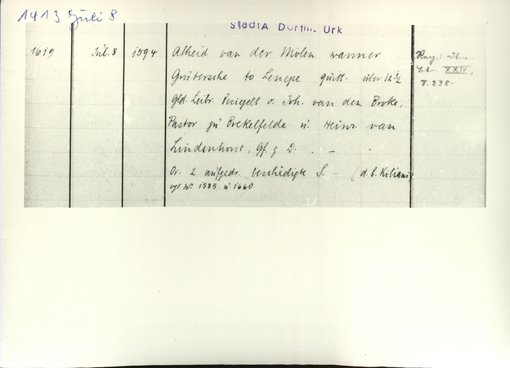 1413 Juli 8
StadtA Dortm. Urk
1619 Jul. 8 1594 Alheid van der Molen wanner
Grutersche to Lennpe quitt. über 12 1/2
gld. Leibr. v. Joh. van den Broke,
Pastor zu Brekelfelde u. Heinr. van
Lindenhorst, Gf. z. D.
Or. 2 aufgedr. beschädigte S. (d. b. Kiliani)
vgl. nr 1589. u 1660
Reg.:
XXIV,
S. 238.